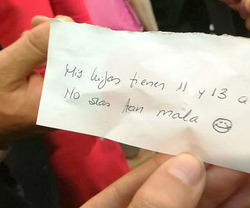 Mis hijas tienen 11 y 13 a
No seas tan mala